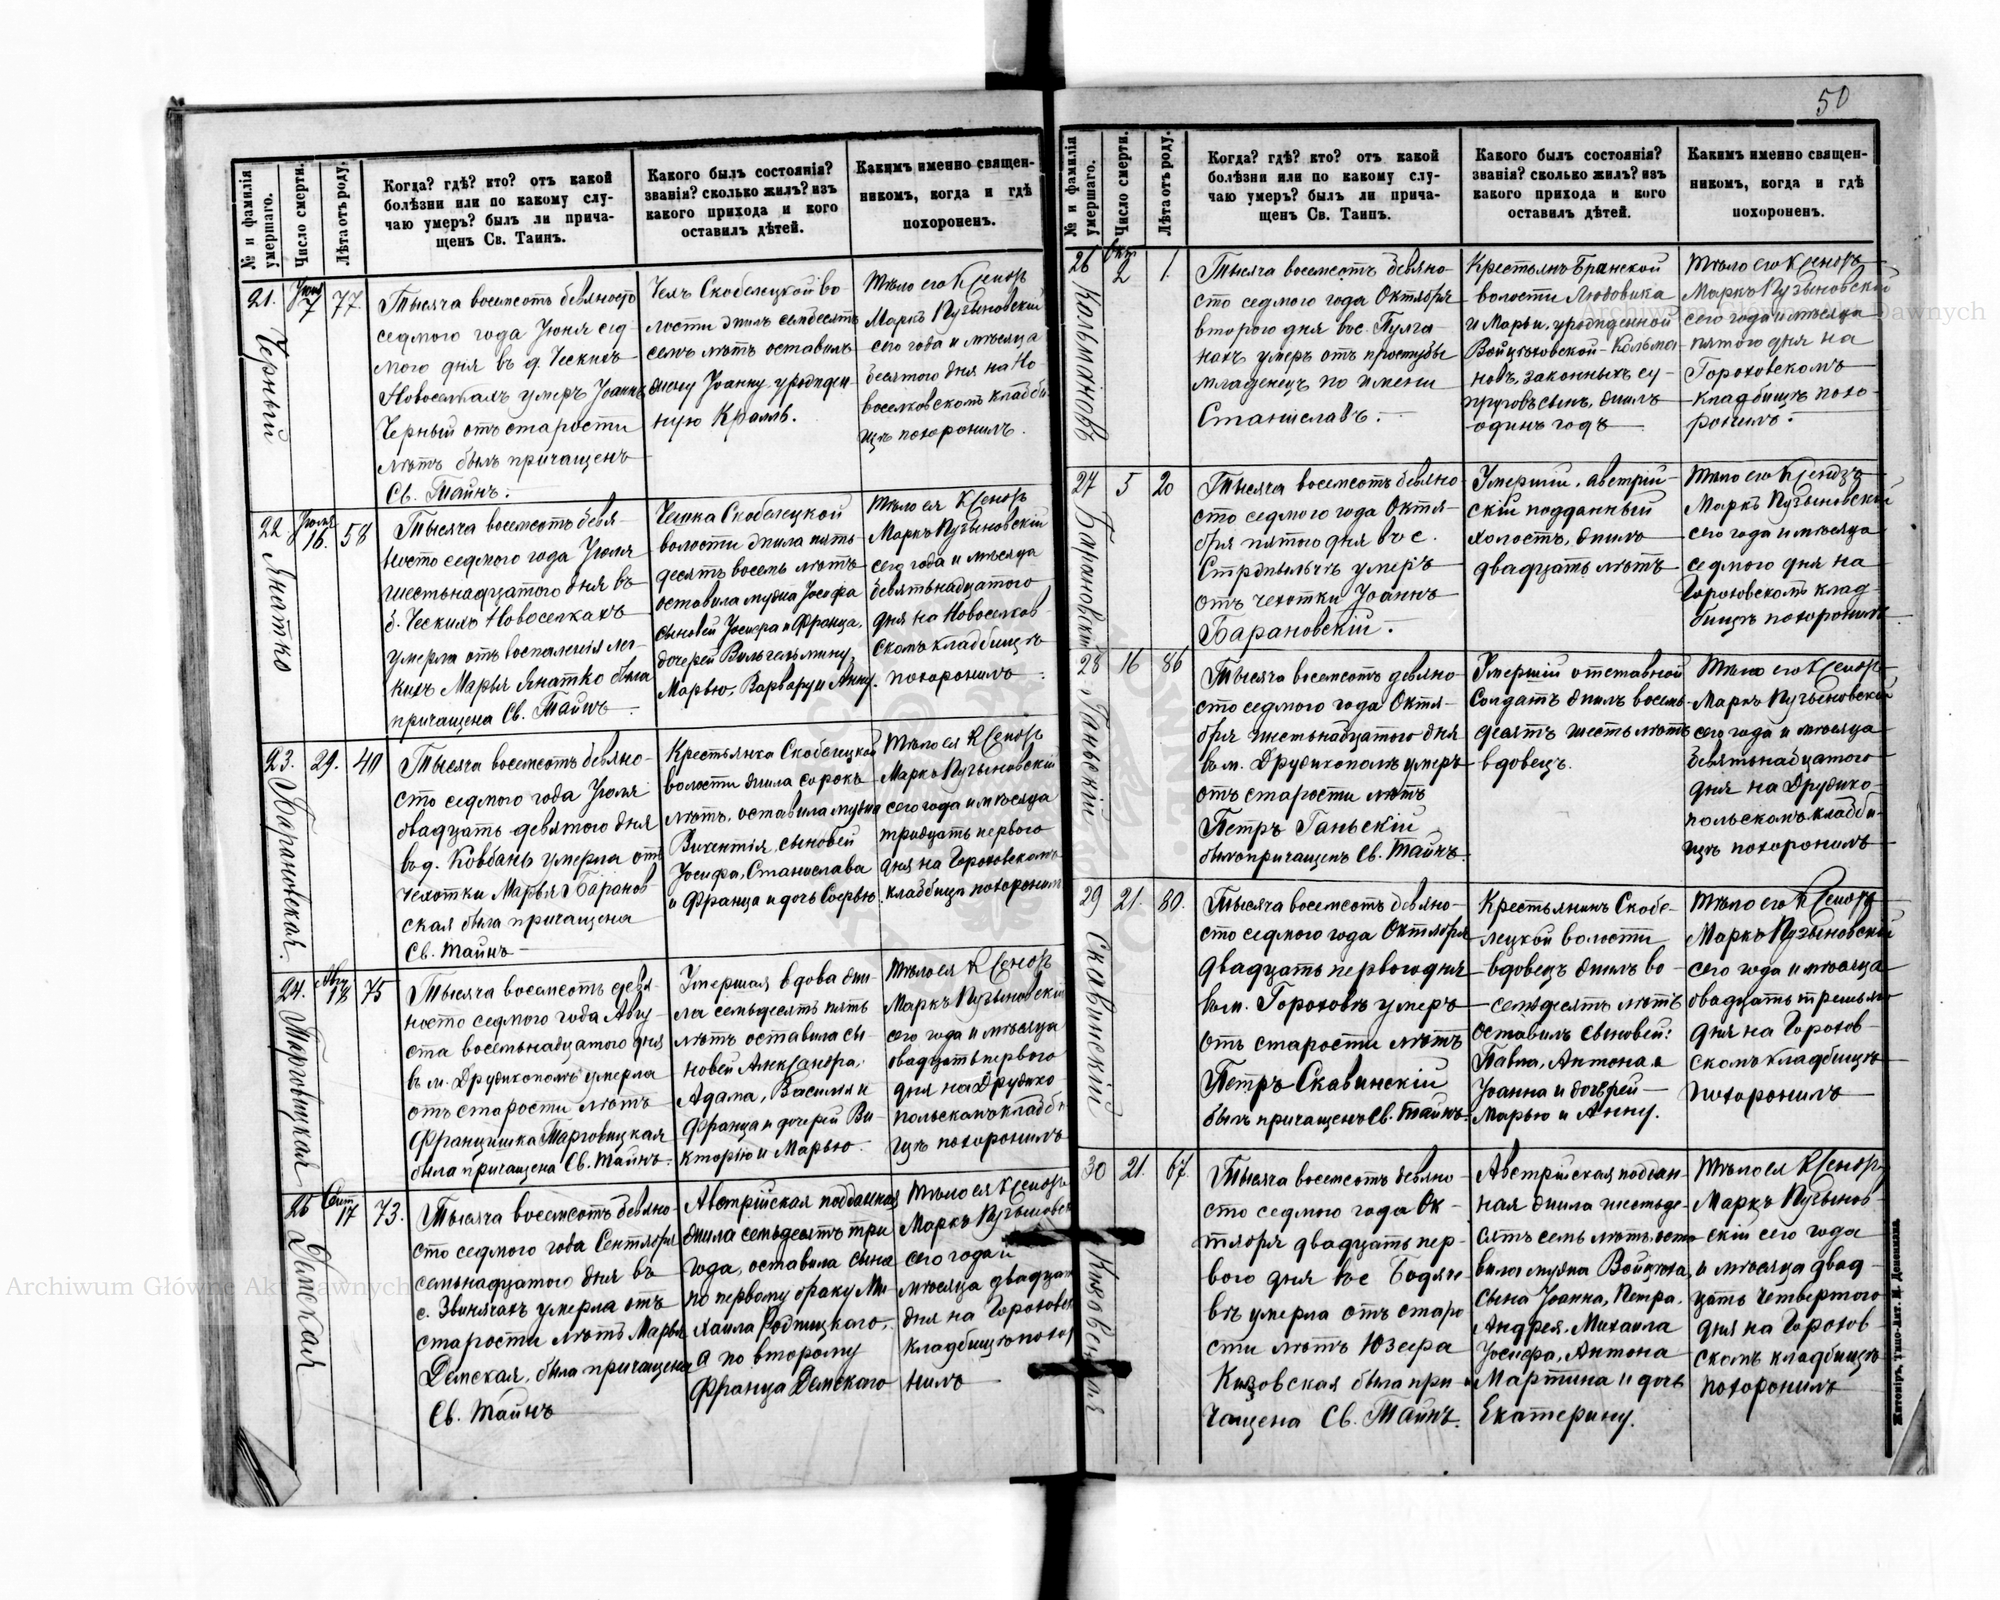 50
№ и фамилія умершаго.
Число смерти.
Лѣта отъ роду.
Когда? гдѣ? кто? отъ какой
болѣзни или по какому слу-
чаю умеръ? былъ ли прича-
щенъ Св. Таинъ.
Какого былъ состоянія?
званія? сколько жилъ? изъ
какого прихода и кого
оставилъ дѣтей.
Какимъ именно священ-
никомъ, когда и гдѣ
похороненъ.
21. Черный
Іюня 7
77.
Тысяча восемсотъ девяносто
седмого года Іюня сед-
мого дня въ д. Ческихъ
Новоселкахъ умеръ Іоаннъ
Черный отъ старости
лѣтъ былъ причащенъ
Св. Тайнъ.
Чехъ Скобелецкой во-
лости жилъ семдесятъ
семь лѣтъ оставилъ
жену Іоанну урожден-
ную Краль.
Тѣло его Ксендзъ
Маркъ Пузыновскій
сего года и мѣсяца
десятого дня на Но-
воселковскомъ кладби-
щѣ похоронилъ.
22 Янатко
Іюля 16.
58
Тысяча восемсотъ девя-
носто седмого года Іюля
шестьнадцатого дня въ
д. Ческихъ Новоселкахъ
умерла отъ воспаленія лег-
кихъ Марья Янатко была
причащена Св. Тайнъ.
Чешка Скобелецкой
волости жила пять-
десятъ восемь лѣтъ
оставила мужа Іосифа
сыновей Іосифа и Франца,
дочерей Вильгельмину,
Марью, Варвару и Анну.
Тѣло ея Ксендзъ
Маркъ Пузыновскій
сего года и мѣсяца
девятьнадцатого
дня на Новоселков
скомъ кладбищѣ
похоронилъ.
23. Барановская.
29.
40
Тысяча восемсотъ девяно-
сто седмого года Іюля
двадцать девятого дня
въ д. Ковбань умерла отъ
чехотки Марья Баранов
ская была причащена
Св. Тайнъ
Крестьянка Скобелецкой
волости жила сорокъ
лѣтъ, оставила мужа
Викентія, сыновей
Іосифа, Станислава
и Франца и дочь Софью.
Тѣло ея Ксендзъ
Маркъ Пузыновскій
сего года и мѣсяца
тридцать первого
дня на Гороховскомъ
кладбищѣ похоронилъ
24. Тарговицкая
Авг. 18
75
Тысяча восемсотъ девя-
носто седмого года Авгу-
ста восемьнадцатого дня
въ м. Дружкополь умерла
отъ старости лѣтъ
Францишка Тарговицкая
была причащена Св. Тайнъ.
Умершая вдова жи-
ла семьдесятъ пять
лѣтъ оставила сы-
новей Александра,
Адама, Василія и
Франца и дочерей Ви-
кторію и Марью.
Тѣло ея Ксендзъ
Маркъ Пузыновскій
сего года и мѣсяца
двадцать первого
дня на Дружко
польскомъ кладби
щѣ похоронилъ
25 Демская
Сент. 17
73.
Тысяча восемсотъ девяно-
сто седмого года Сентября
семьнадцатого дня въ
с. Звинячахъ умерла отъ
старости лѣтъ Марья
Демская, была причащена
Св. Тайнъ
Австрійская подданная
жила семьдесятъ три
года, оставила сына
по первому браку Ми-
хаила
а по второму
Франца Демского
Тѣло ея Ксендзъ
Маркъ Пузыновск
сего года и
мѣсяца двадцат
дня на Гороховс
кладбищѣ похор
нилъ
№ и фамилія умершаго.
Число смерти.
Лѣта отъ роду.
Когда? гдѣ? кто? отъ какой
болѣзни или по какому слу-
чаю умеръ? былъ ли прича-
щенъ Св. Таинъ.
Какого былъ состоянія?
званія? сколько жилъ? изъ
какого прихода и кого
оставилъ дѣтей.
Какимъ именно священ-
никомъ, когда и гдѣ
похороненъ.
26 Кольмановъ
Окт. 2
1.
Тысяча восемсотъ девяно-
сто седмого года Октября
второго дня в с. Пулга-
нахъ умеръ отъ простуды
младенецъ по имени
Станиславъ.
Крестьянъ Бранской
волости Людовика
и Марьи, урожденной
Войцѣховской-Кольма-
новъ, законныхъ су-
пруговъ сынъ, жилъ
одинъ годъ
Тѣло его Ксендзъ
Маркъ Пузыновскій
сего года и мѣсяца
пятого дня на
Гороховскомъ
кладбищѣ похо-
ронилъ.
27 Барановскій
5
20
Тысяча восемсотъ девяно
сто седмого года Октя-
бря пятого дня въ с.
Стрѣльчѣ умеръ
отъ чехотки Іоаннъ
Барановскій.
Умершій, австрій-
скій подданный
холостъ, жилъ
двадцать лѣтъ
Тѣло его Ксендзъ
Маркъ Пузыновскій
сего года и мѣсяца
седмого дня на
Гороховскомъ клад-
бищѣ похоронилъ
28 Ганьскій
16
86
Тысяча восемсотъ девяно-
сто седмого года Октя-
бря шестьнадцатого дня
въ м. Дружкополь умеръ
отъ старости лѣтъ
Петръ Ганьскій
былъ причащенъ Св. Тайнъ.
Умершій отставной
солдатъ жилъ восемь
десятъ шесть лѣтъ
вдовецъ.
Тѣло его Ксендзъ
Маркъ Пузыновскій
сего года и мѣсяца
девятьнадцатого
дня на Дружко-
польскомъ кладби-
щѣ похоронилъ
29 Скавинскій
21.
80.
Тысяча восемсотъ девяно-
сто седмого года Октября
двадцать первого дня
въ м. Гороховѣ умеръ
отъ старости лѣтъ
Петръ Скавинскій
былъ причащенъ Св. Тайнъ.
Крестьянинъ Скобе-
лецкой волости
вдовецъ жилъ во
семьдесятъ лѣтъ
оставилъ сыновей:
Павла, Антона и
Іоанна и дочерей
Марью и Анну.
Тѣло его Ксендзъ
Маркъ Пузыновскій
сего года и мѣсяца
двадцать третьяго
дня на Горохов-
скомъ кладбищѣ
похоронилъ
30
21.
67.
Тысяча восемсотъ девяно-
сто седмого года Ок-
тября двадцать пер-
вого дня въ с
въ умерла отъ старо
сти лѣтъ Юзефа
была при
чащена Св. Тайнъ.
Австрійская поддан-
ная жила шестьде-
сятъ семь лѣтъ оста
вила мужа Войцѣха,
сына Іоанна, Петра,
Андрея, Михаила
Іосифа, Антона
Мартина и дочь
Екатерину.
Тѣло ея Ксендзъ
Маркъ Пузынов-
скій сего года
и мѣсяца двад-
цать четвертого
дня на Горохов-
скомъ кладбищѣ
похоронилъ
Житоміръ, Типо-Лит. И. Дененмана
Archiwum Główne Akt Dawnych
Archiwum Główne Akt Dawnych